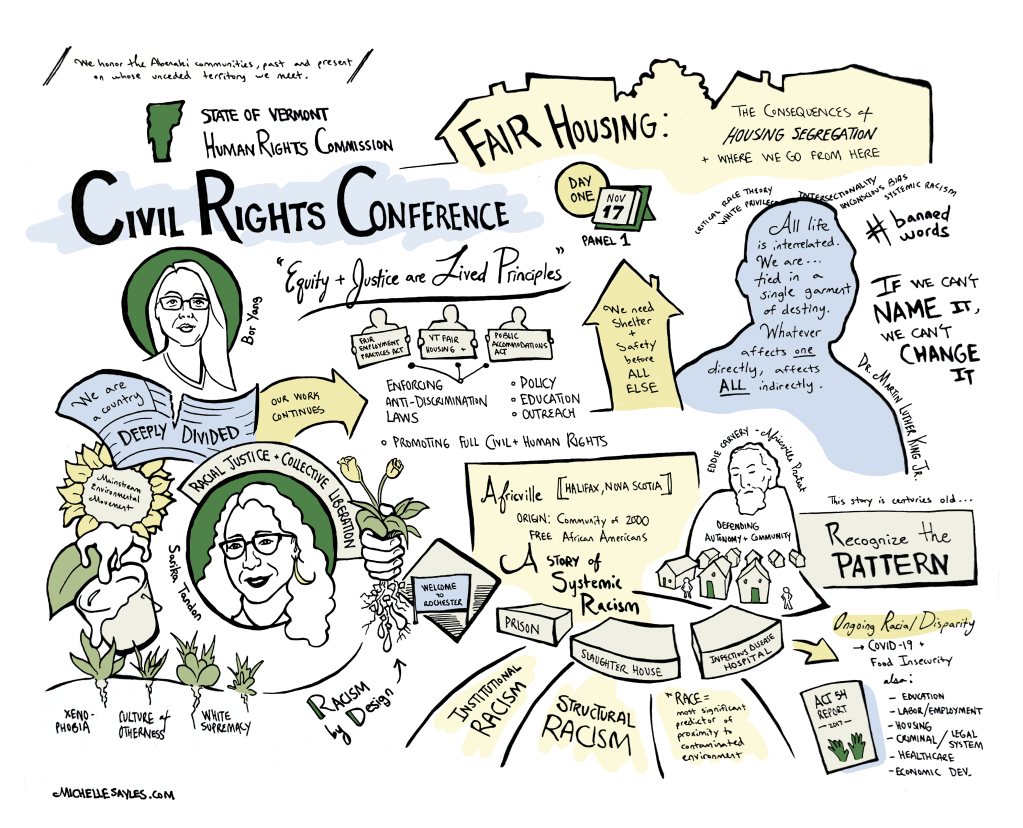 We honor the Abenaki communities, past and present
on whose unceded territory we meet.
STATE OF VERMONT
HUMAN RIGHTS COMMISSION
CIVIL RIGHTS CONFERENCE
FAIR HOUSING:
THE CONSEQUENCES of
HOUSING SEGREGATION
+ WHERE WE GO FROM HERE
DAY
ONE
NOV
17
PANEL 1
"Equity + Justice are Lived Principles"
Bor Yang
FAIR
EMPLOYMENT
PRACTICES ACT
VT FAIR
HOUSING +
PUBLIC
ACCOMMODATIONS
ACT
ENFORCING
ANTI-DISCRIMINATION
LAWS
• POLICY
• EDUCATION
• OUTREACH
• PROMOTING FULL CIVIL + HUMAN RIGHTS
We are
a country
DEEPLY DIVIDED
OUR WORK
CONTINUES
We need
Shelter
+
Safety
before
ALL
ELSE
CRITICAL RACE THEORY
WHITE PRIVILEGE
INTERSECTIONALITY
UNCONSCIOUS BIAS
SYSTEMIC RACISM
# banned
words
All life
is interrelated.
We are...
tied in a
single garment
of destiny.
Whatever
affects one
directly, affects
ALL indirectly.
DR. MARTIN LUTHER KING JR.
IF WE CAN'T
NAME IT,
WE CAN'T
CHANGE
IT
Mainstream
Environmental
Movement
RACIAL JUSTICE + COLLECTIVE LIBERATION
Sarika Tandon
XENO-
PHOBIA
CULTURE of
OTHERNESS
WHITE
SUPREMACY
RACISM
by Design
WELCOME
TO
ROCHESTER
Africville [HALIFAX, NOVA SCOTIA]
ORIGIN: Community of 2000
FREE African Americans
A STORY OF
Systemic
Racism
EDDIE CARVERY - Africville Protest
DEFENDING
AUTONOMY + COMMUNITY
This story is centuries old...
Recognize the
PATTERN
PRISON
SLAUGHTER HOUSE
INFECTIOUS DISEASE
HOSPITAL
INSTITUTIONAL
RACISM
STRUCTURAL
RACISM
*RACE =
most significant
predictor of
proximity to
contaminated
environment
Ongoing Racial Disparity
→ COVID-19 +
Food Insecurity
also:
- EDUCATION
- LABOR/EMPLOYMENT
- HOUSING
- CRIMINAL / LEGAL
SYSTEM
- HEALTHCARE
- ECONOMIC DEV.
ACT 54
REPORT
- 2017 -
MICHELLESAYLES.COM